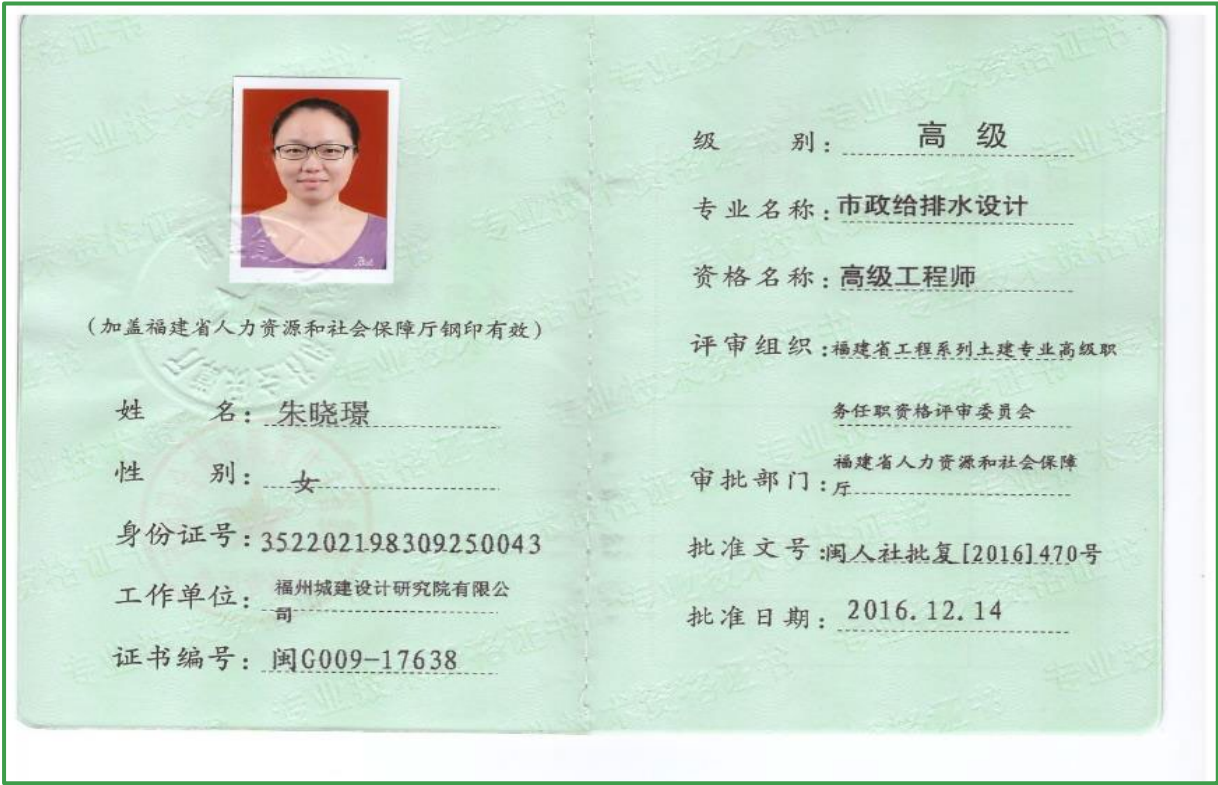 (加盖福建省人力资源和社会保障厅钢印有效)
姓 名: 朱晓璟
性 别: 女
身份证号: 352202198309250043
工作单位: 福州城建设计研究院有限公
司
证书编号: 闽G009-17638
级 别: 高 级
专业名称: 市政给排水设计
资格名称: 高级工程师
评审组织: 福建省工程系列土建专业高级职
务任职资格评审委员会
福建省人力资源和社会保障
审批部门: 厅
批准文号: 闽人社批复[2016]470号
批准日期: 2016.12.14